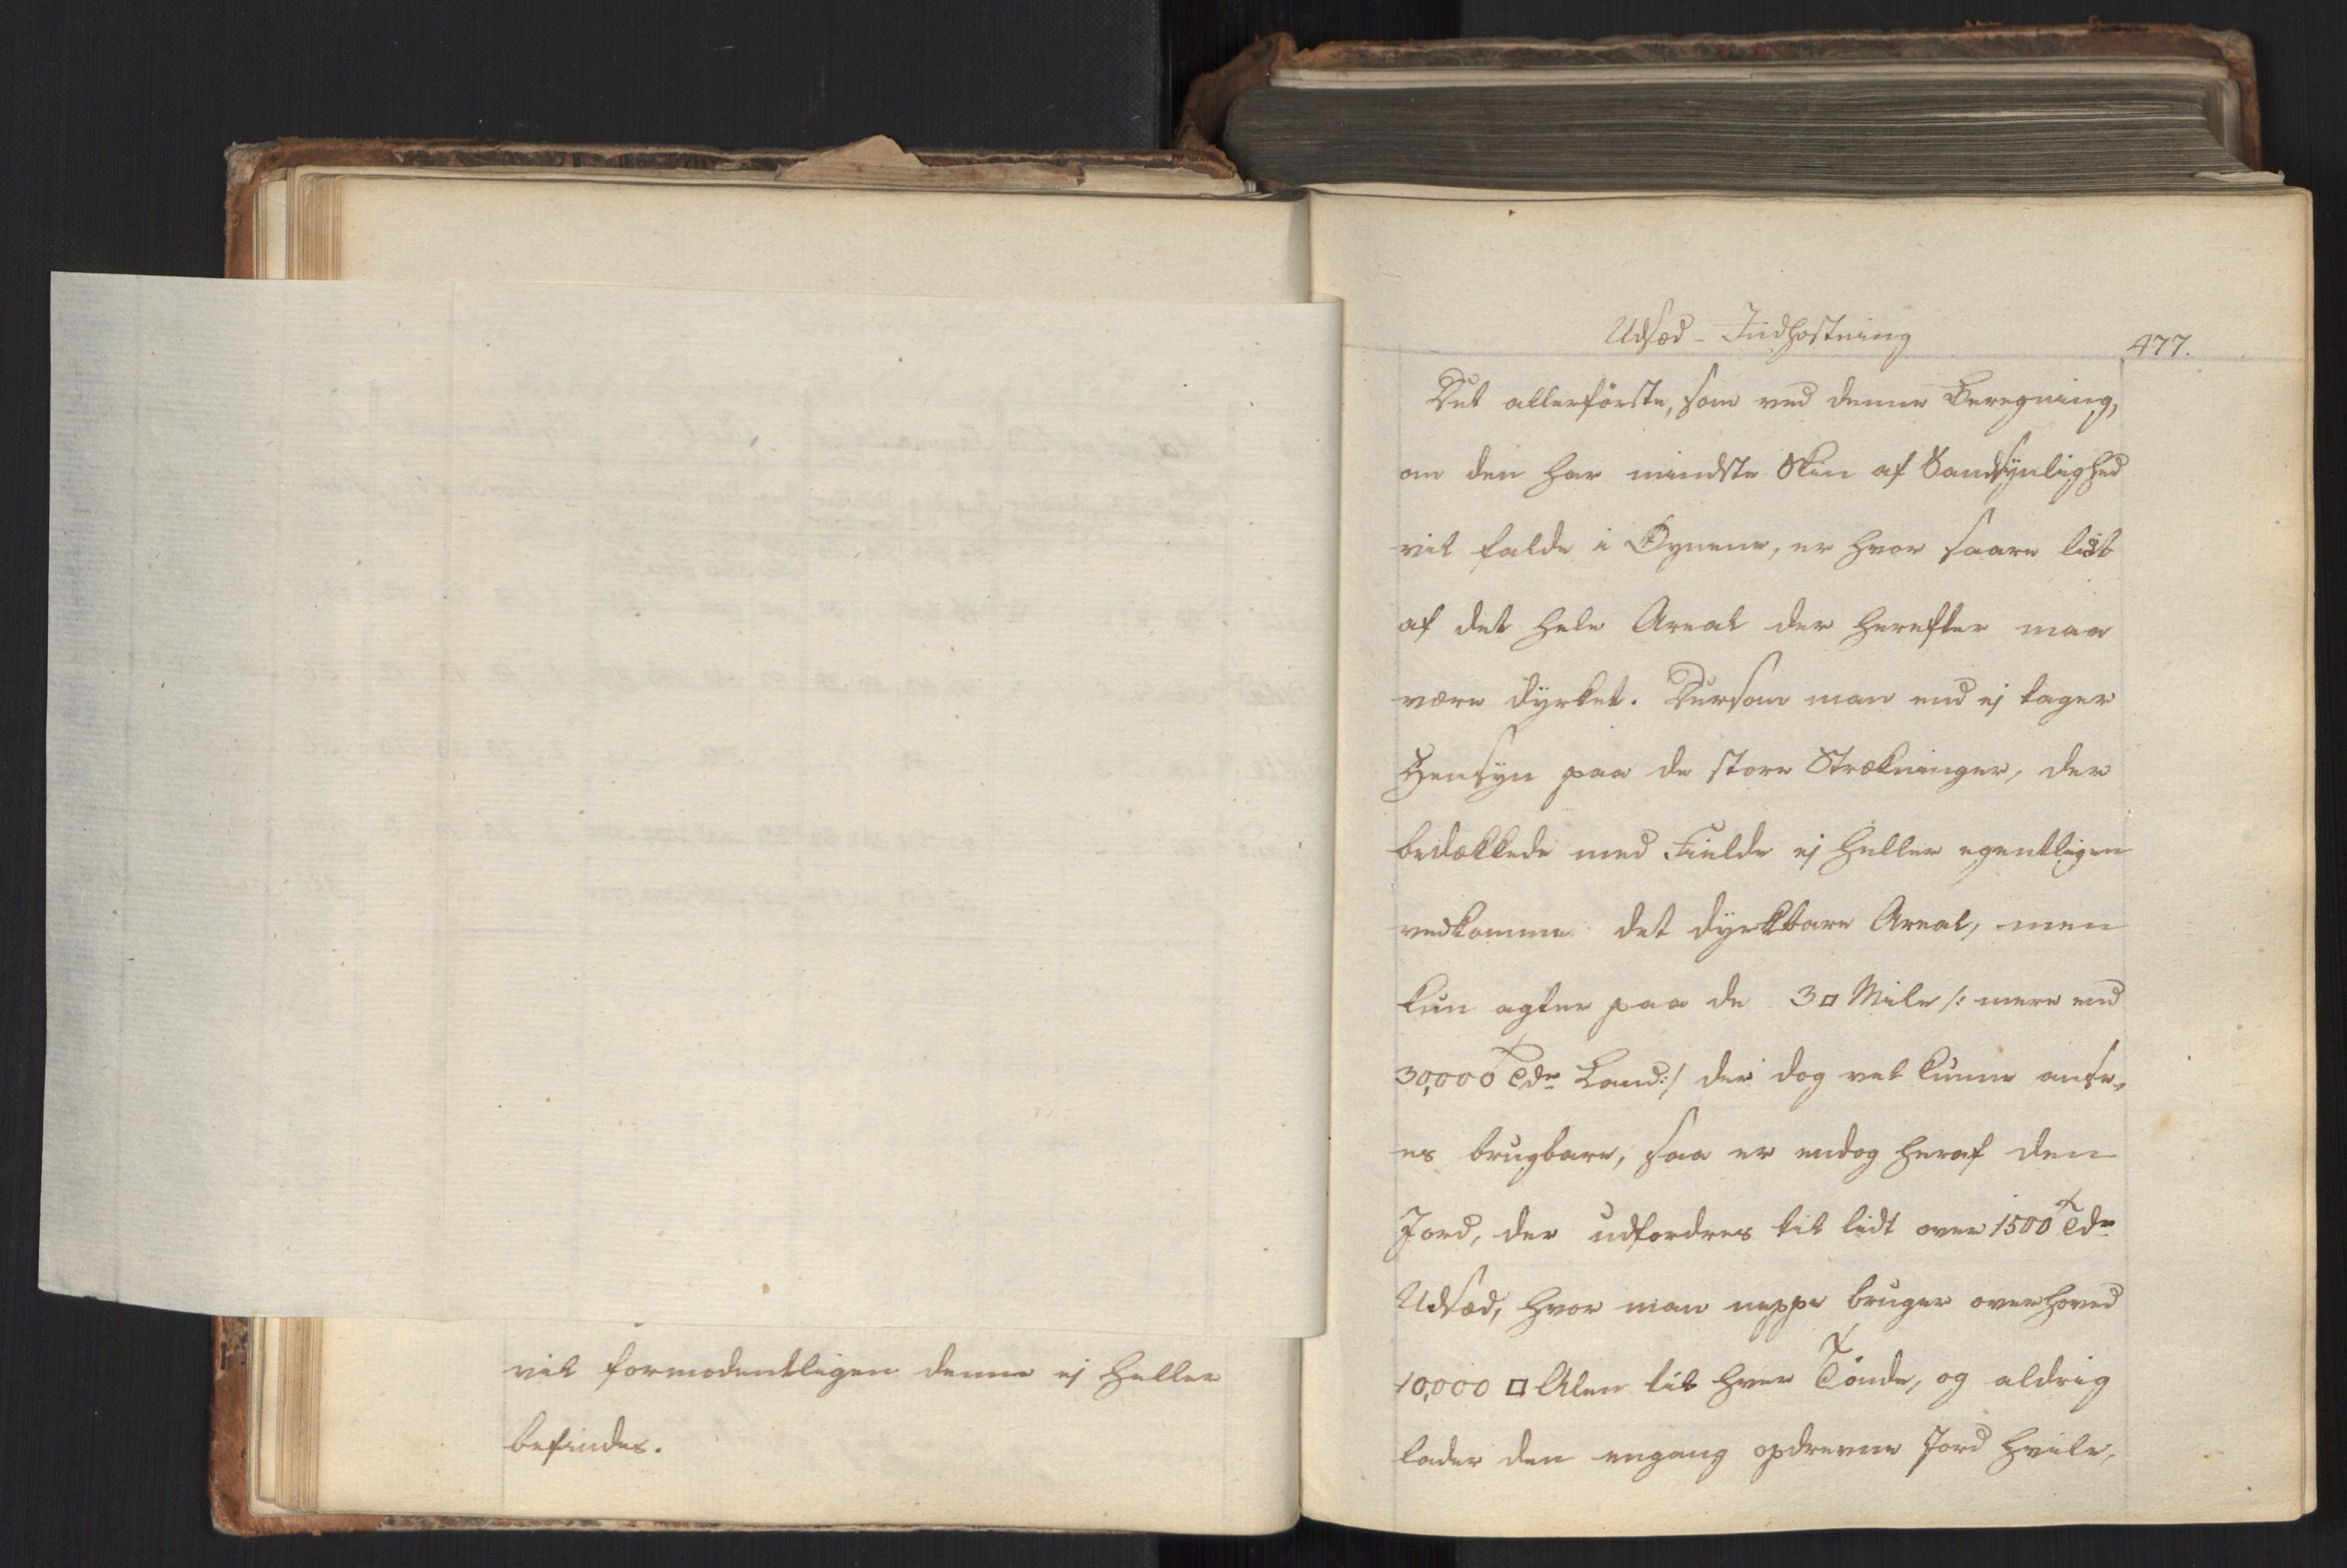 vil formodentligen denne ej heller
befindes.
Udsæd - Indhøstning
477.
Det allerførste, som ved denne Beregning,
om den har mindste Skin af Sandsÿnlighed
vil falde i Øynene, er hvor saare lidt
af det hele Areal der herefter maa
være dÿrket. Dersom man end ej tager
Hensÿn paa de store Strækninger, der
bedækkede med Fielde ej heller egentligen
vedkomme det dÿrkbare Areal, men
kun agter paa de 3 □ Mile /: mere end
30,000 Tdr Land :/ der dog vel kunne anse,,
es brugbare, saa er endog heraf den
Jord, der udfordres til lidt over 1500 Tdr
Udsæd, hvor man neppe bruger overhoved
10,000 □ Alen til hver Tønde, og aldrig
lader den engang opdrevne Jord hvile,